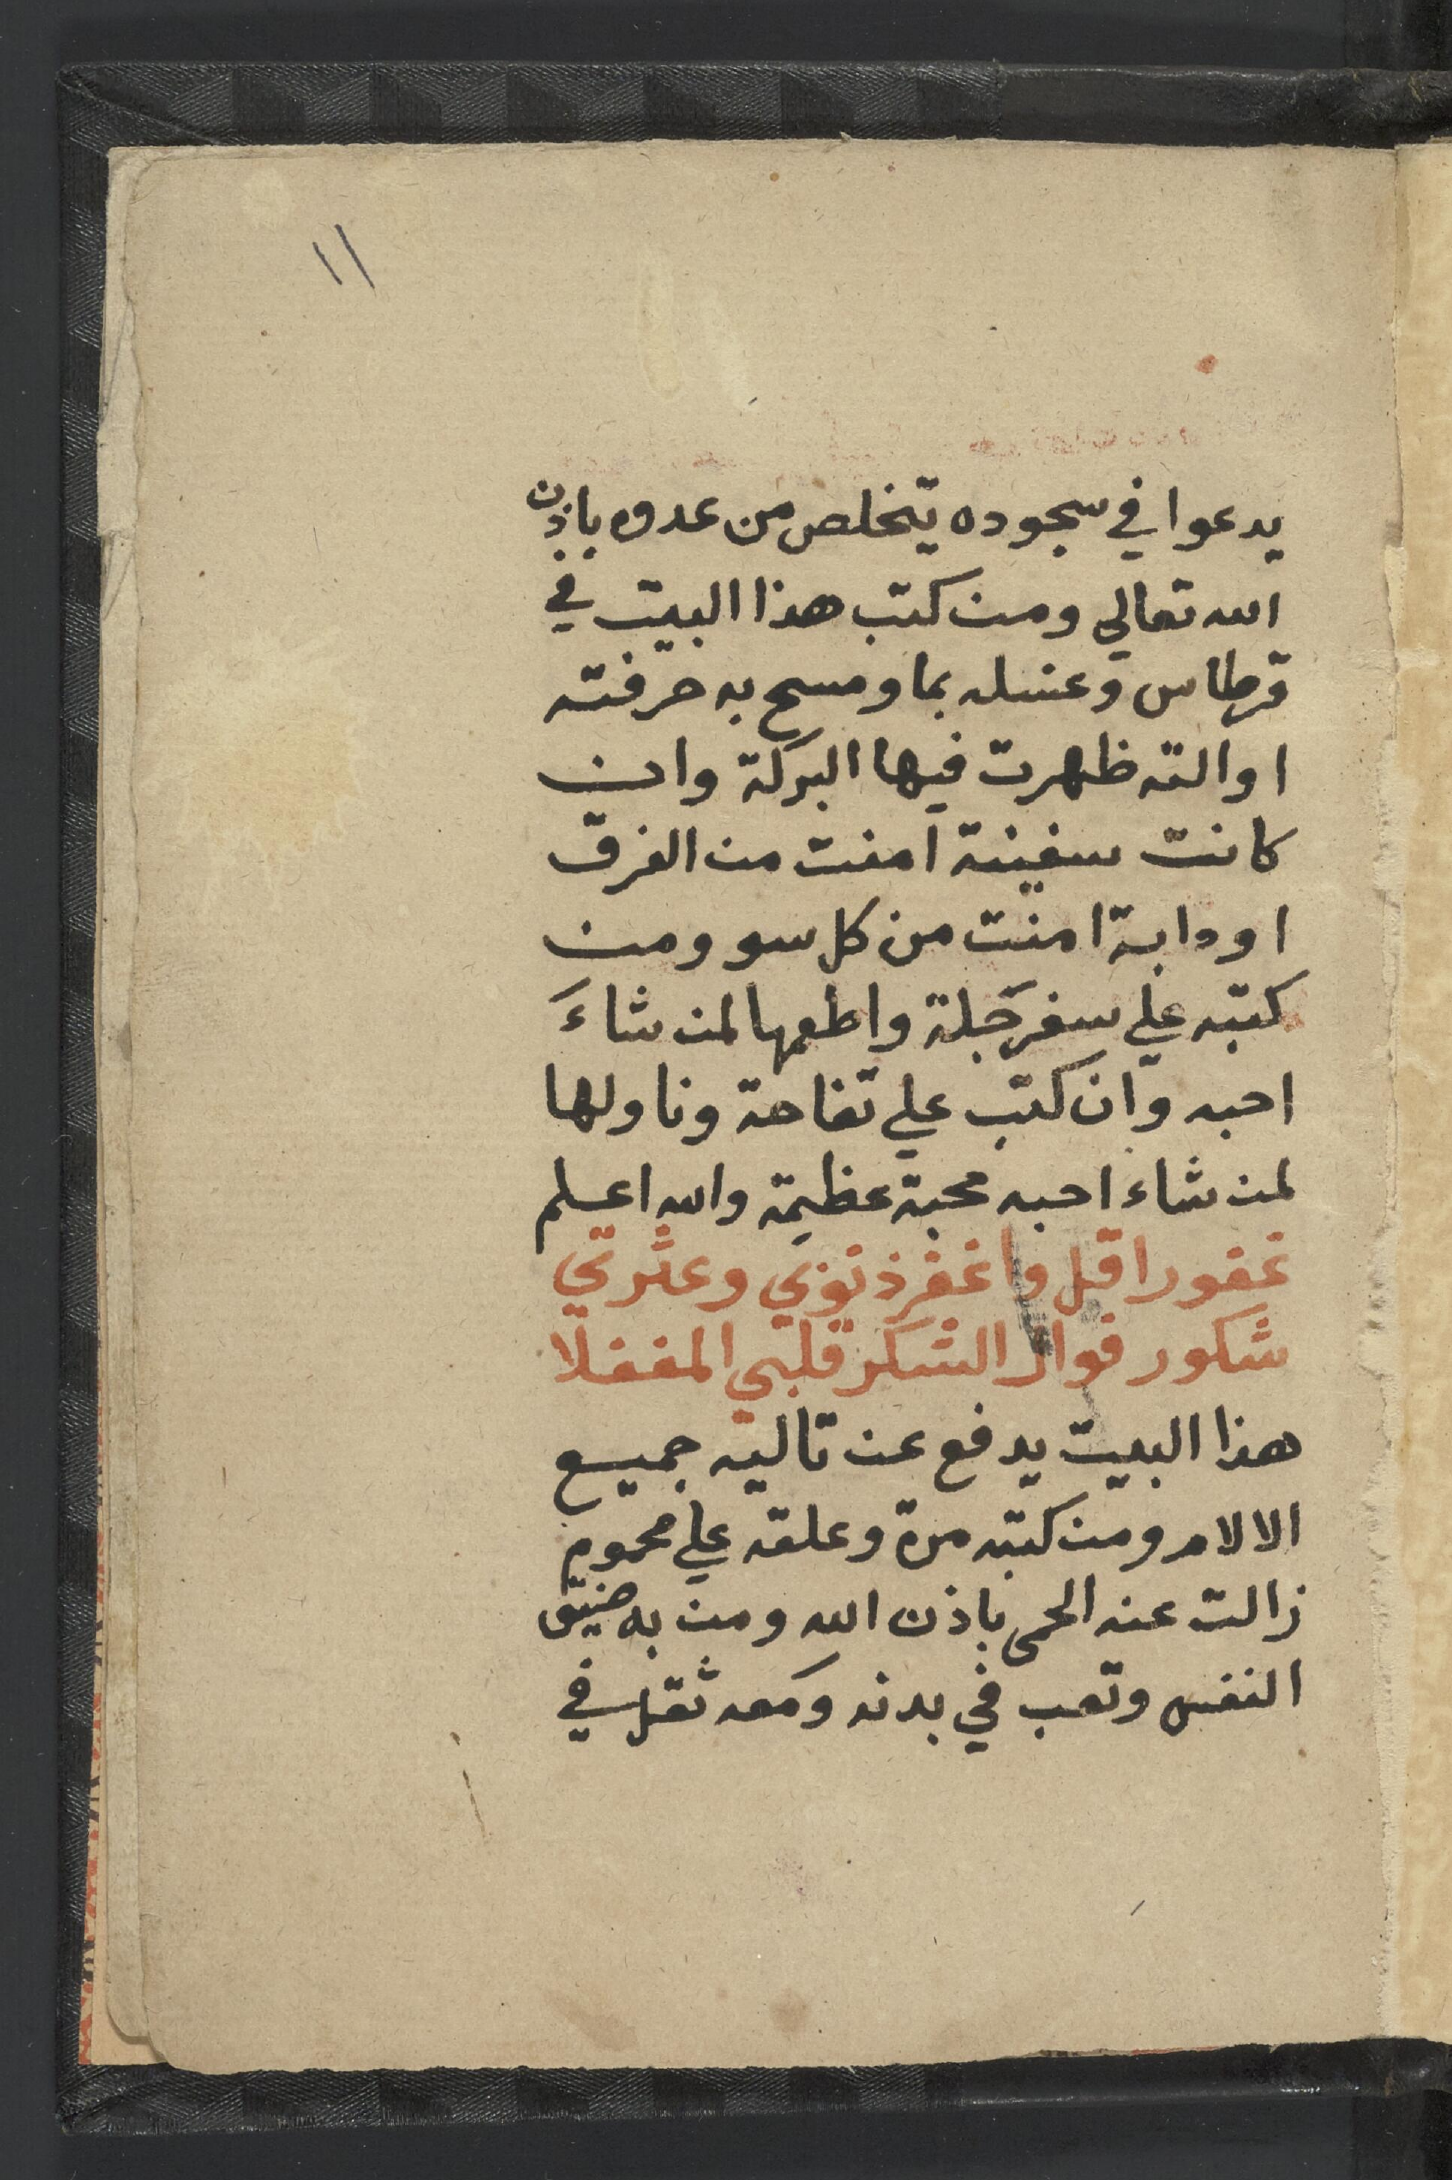 ١١
يدعوا في سجوده يتخلص من عدوه باذن
الله تعالي ومن كتب هذا البيت في
قرطاس وغسله بما ومسح به حرفته
او الته ظهرت فيها البركة وان
كانت سفينة امنت من الغرق
او دابة امنت من كل سو ومن
كتبه علي سفرجلة واطعمها لمن شاءَ
احبه وان كتب علي تفاحة وناولها
لمن شاء احبه محبة عظيمة والله اعلم
غفور اقل واغفر ذنوبي وعثرتي
شكور فوال الشكر قلبي المغفلا
هذا البيت يدفع عن تاليه جميع
الالام ومن كتبه مرة وعلقه علي محموم
زالت عنه الحمى باذن الله ومن به ضيق
النفس وتعب في بدنه ومعه ثقل في